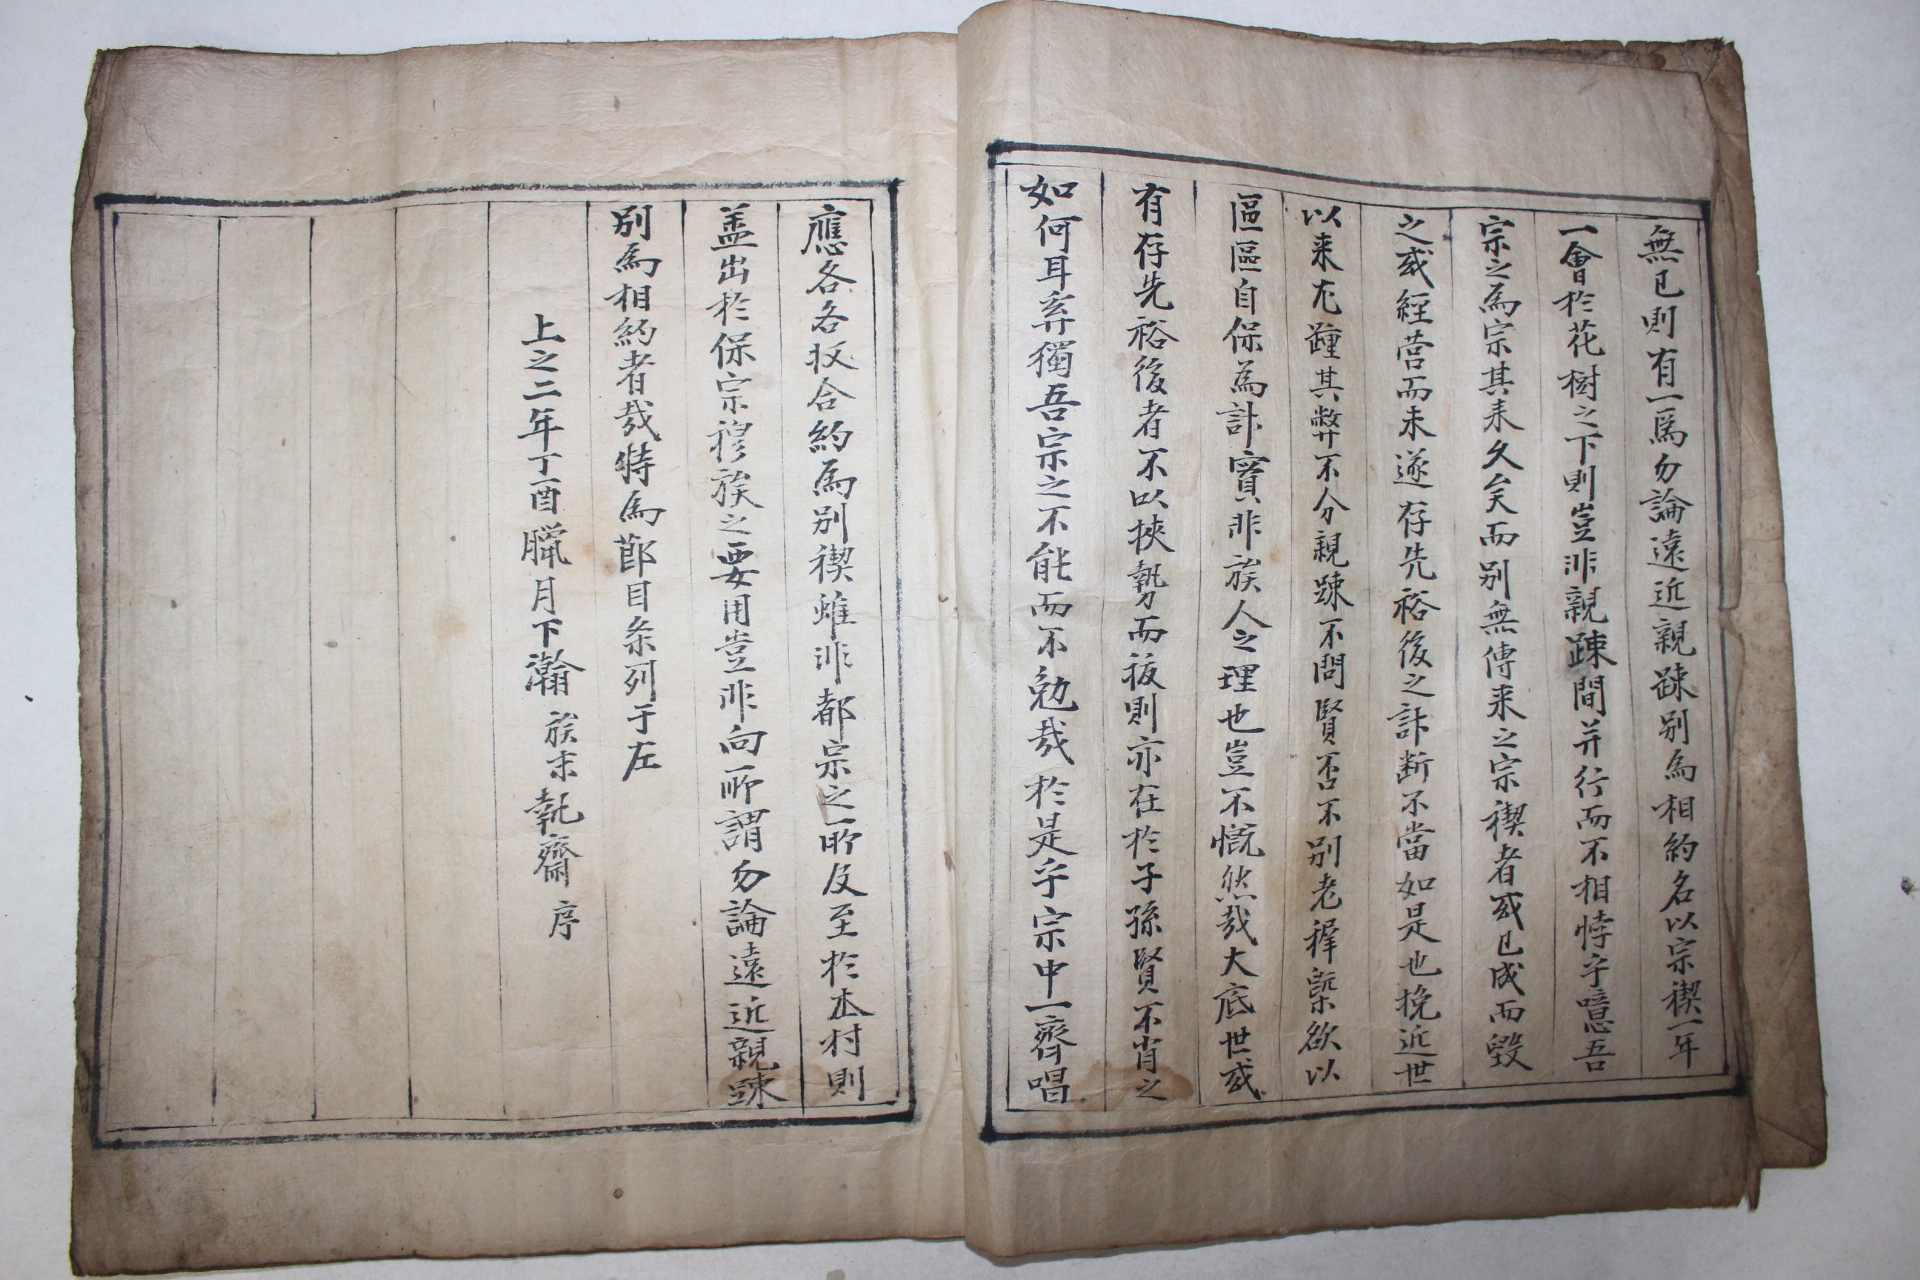 無已則有一爲勿論遠近親踈別為相約名以宗禊一年
一會於花樹之下則豈非親踈間并行而不相悖乎噫吾
宗之為宗其來久矣而別無傳来之宗禊者或已成而毀
之或經営而未遂存先裕後之計断不當如是也挽近世
以来尤踵其弊不分親踈不問賢否不別老穉槩欲以
區區自保為計實非族人之理也豈不慨然哉大底世或
有存先裕後者不以挾勢而抜則亦在於子孫賢不肖之
如何耳奔獨吾宗之不能而不勉哉於是乎宗中一齊唱
應各各收合約為別禊雖非都宗之所及至於本村則
盖出於保宗穆族之要用豈非向所謂勿論遠近親踈
別為相約者哉特為節目条列于左
上之二年丁酉臘月下瀚族末執齋序